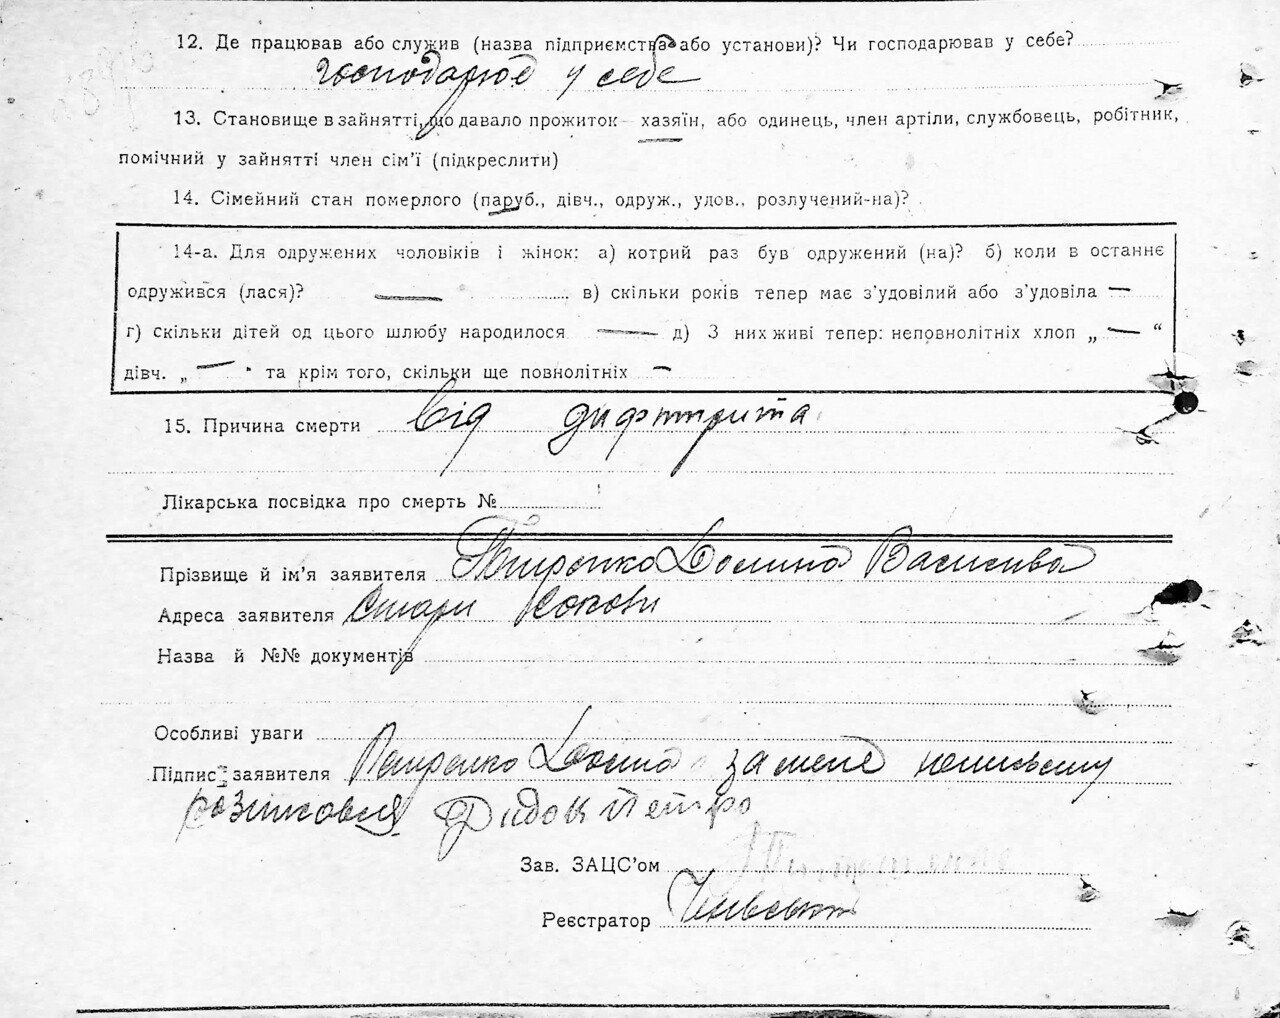 12. Де працював або служив (назва підприємства або установи)? Чи господарював у себе?
господарює у себе
13. Становище в зайнятті, що давало прожиток — хазяїн, або одинець, член артіли, службовець, робітник,
помічний у зайнятті член сім’ї (підкреслити)
14. Сімейний стан померлого (паруб., дівч., одруж., удов., розлучений-на)?
14-а. Для одружених чоловіків і жінок: а) котрий раз був одружений (на)? б) коли в останнє
одружився (лася)? — в) скільки років тепер має з’удовілий або з’удовіла —
г) скільки дітей од цього шлюбу народилося — д) З них живі тепер: неповнолітніх хлоп „ — “
дівч. „ — “ та крім того, скільки ще повнолітніх —
15. Причина смерти від дифтерита
Лікарська посвідка про смерть №
Прізвище й ім’я заявителя Петренко
Адреса заявителя Стари
Назва й №№ документів
Особливі уваги
Підпис заявителя Петренко за мене
Петро
Зав. ЗАЦС’ом
Реєстратор